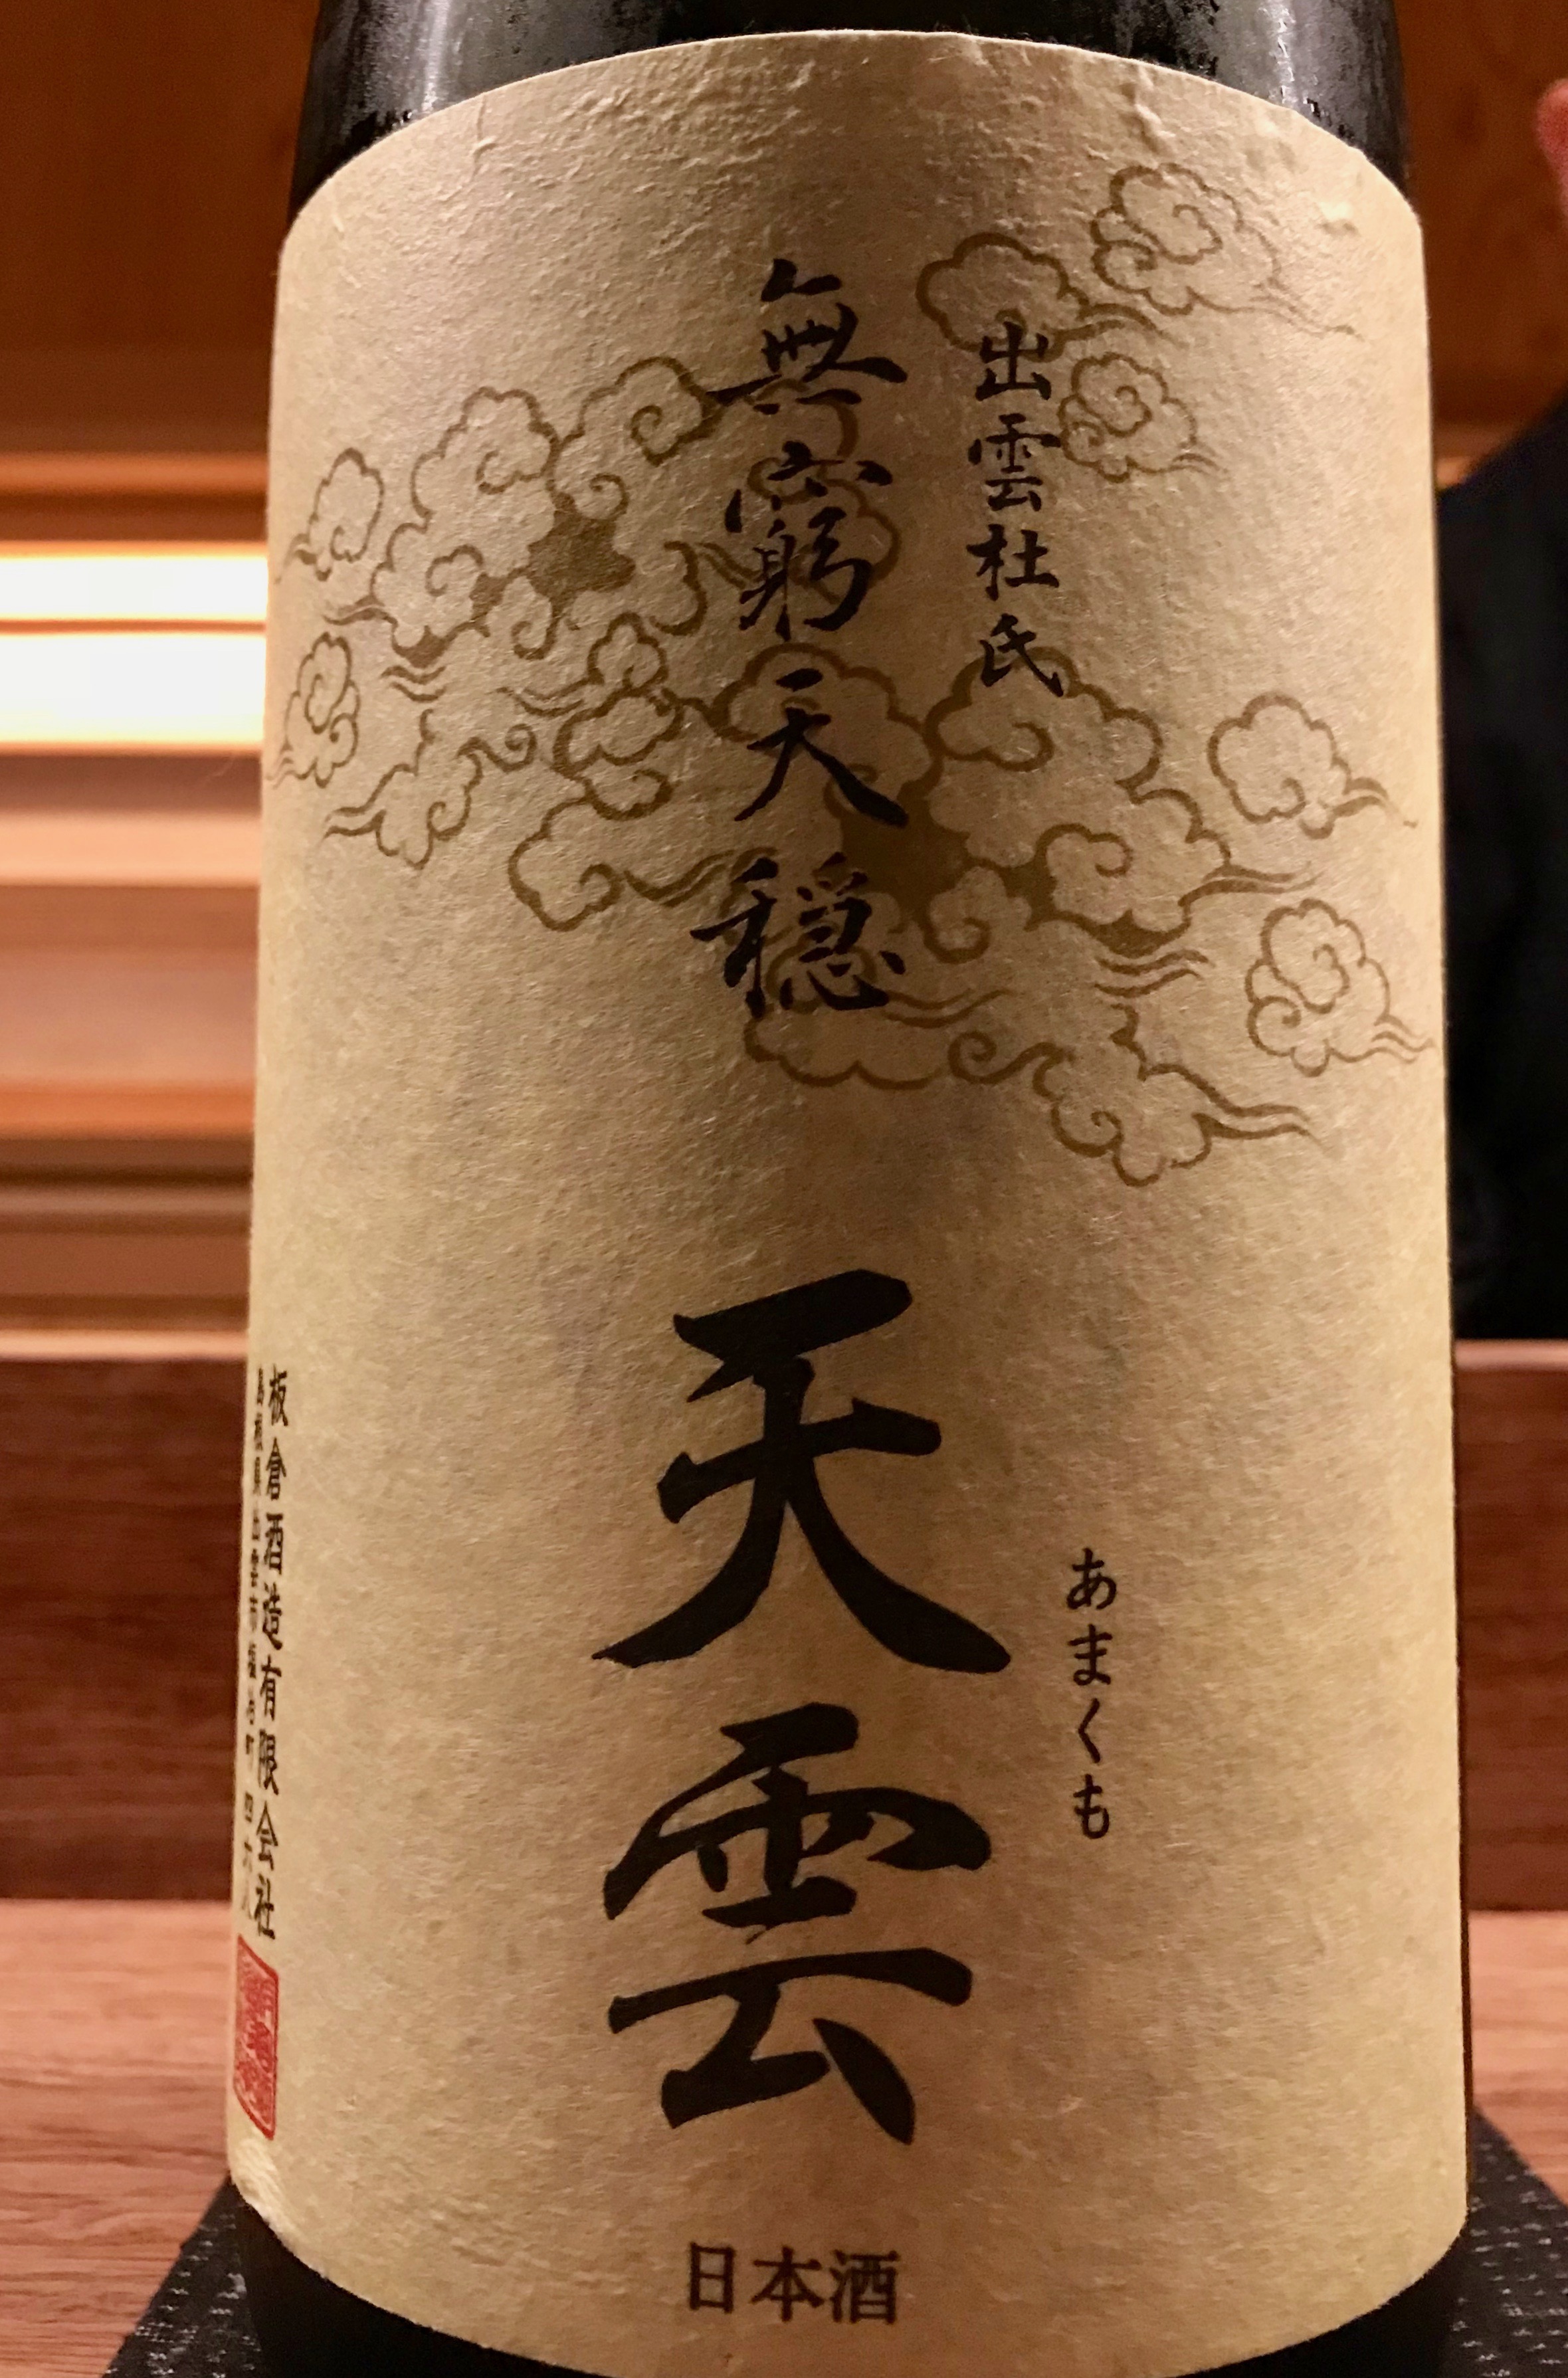 出雲杜氏
無窮天穏
あまくも
天雲
板倉酒造有限会社
島根県出雲市塩冶町四六八
日本酒